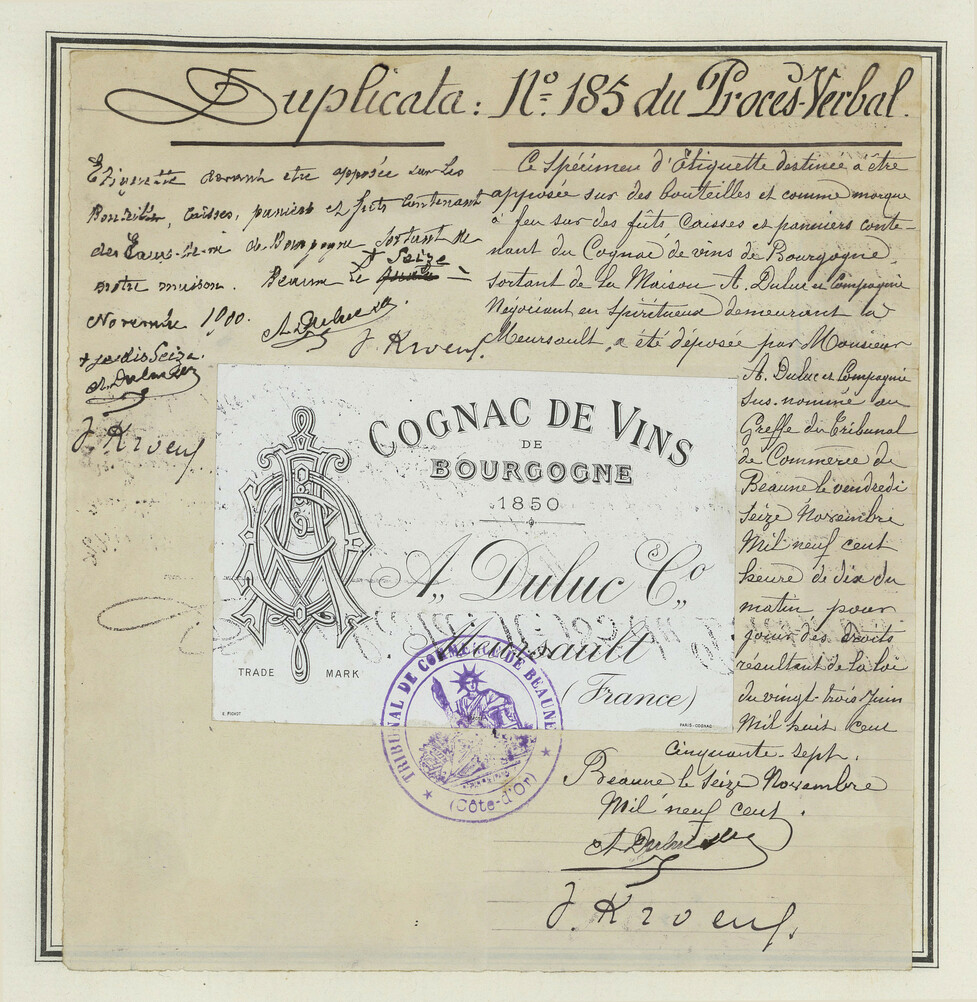 Duplicata: No. 185 du Procès-Verbal.
Etiquette devant etre apposée sur les
Bouteilles, caisses, paniers et futs contenant
des Eaux-de-vie de Bourgogne sortant de
notre maison. Beaune le + Seize
Novembre 1900. A Duluc
J. Kroeuf
+ je dis Seize.
A. Duluc
J. Kroeuf
Ce Spécimen d'Étiquette destinée à être
apposée sur des bouteilles et comme marque
à feu sur des fûts Caisses et panniers conte-
nant du Cognac de vins de Bourgogne,
sortant de la Maison A. Duluc et Compagnie
Négociant en Spiritueux demeurant à
Meursault, a été déposée par Monsieur
A. Duluc et Compagnie
sus-nommé au
Greffe du Tribunal
de Commerce de
Beaune le vendredi
seize Novembre
Mil neuf cent
heure de dix du
matin pour
jouir des droits
résultant de la loi
du vingt-trois Juin
Mil huit cent
cinquante-sept.
Beaune le seize Novembre
Mil neuf cent.
A Duluc
J. Kroeuf
COGNAC DE VINS
DE
BOURGOGNE
1850
A,, Duluc & Co,,
Meursault
(France)
TRADE MARK
E. PICHOT
PARIS-COGNAC
TRIBUNAL DE COMMERCE DE BEAUNE
(Côte-d'Or)